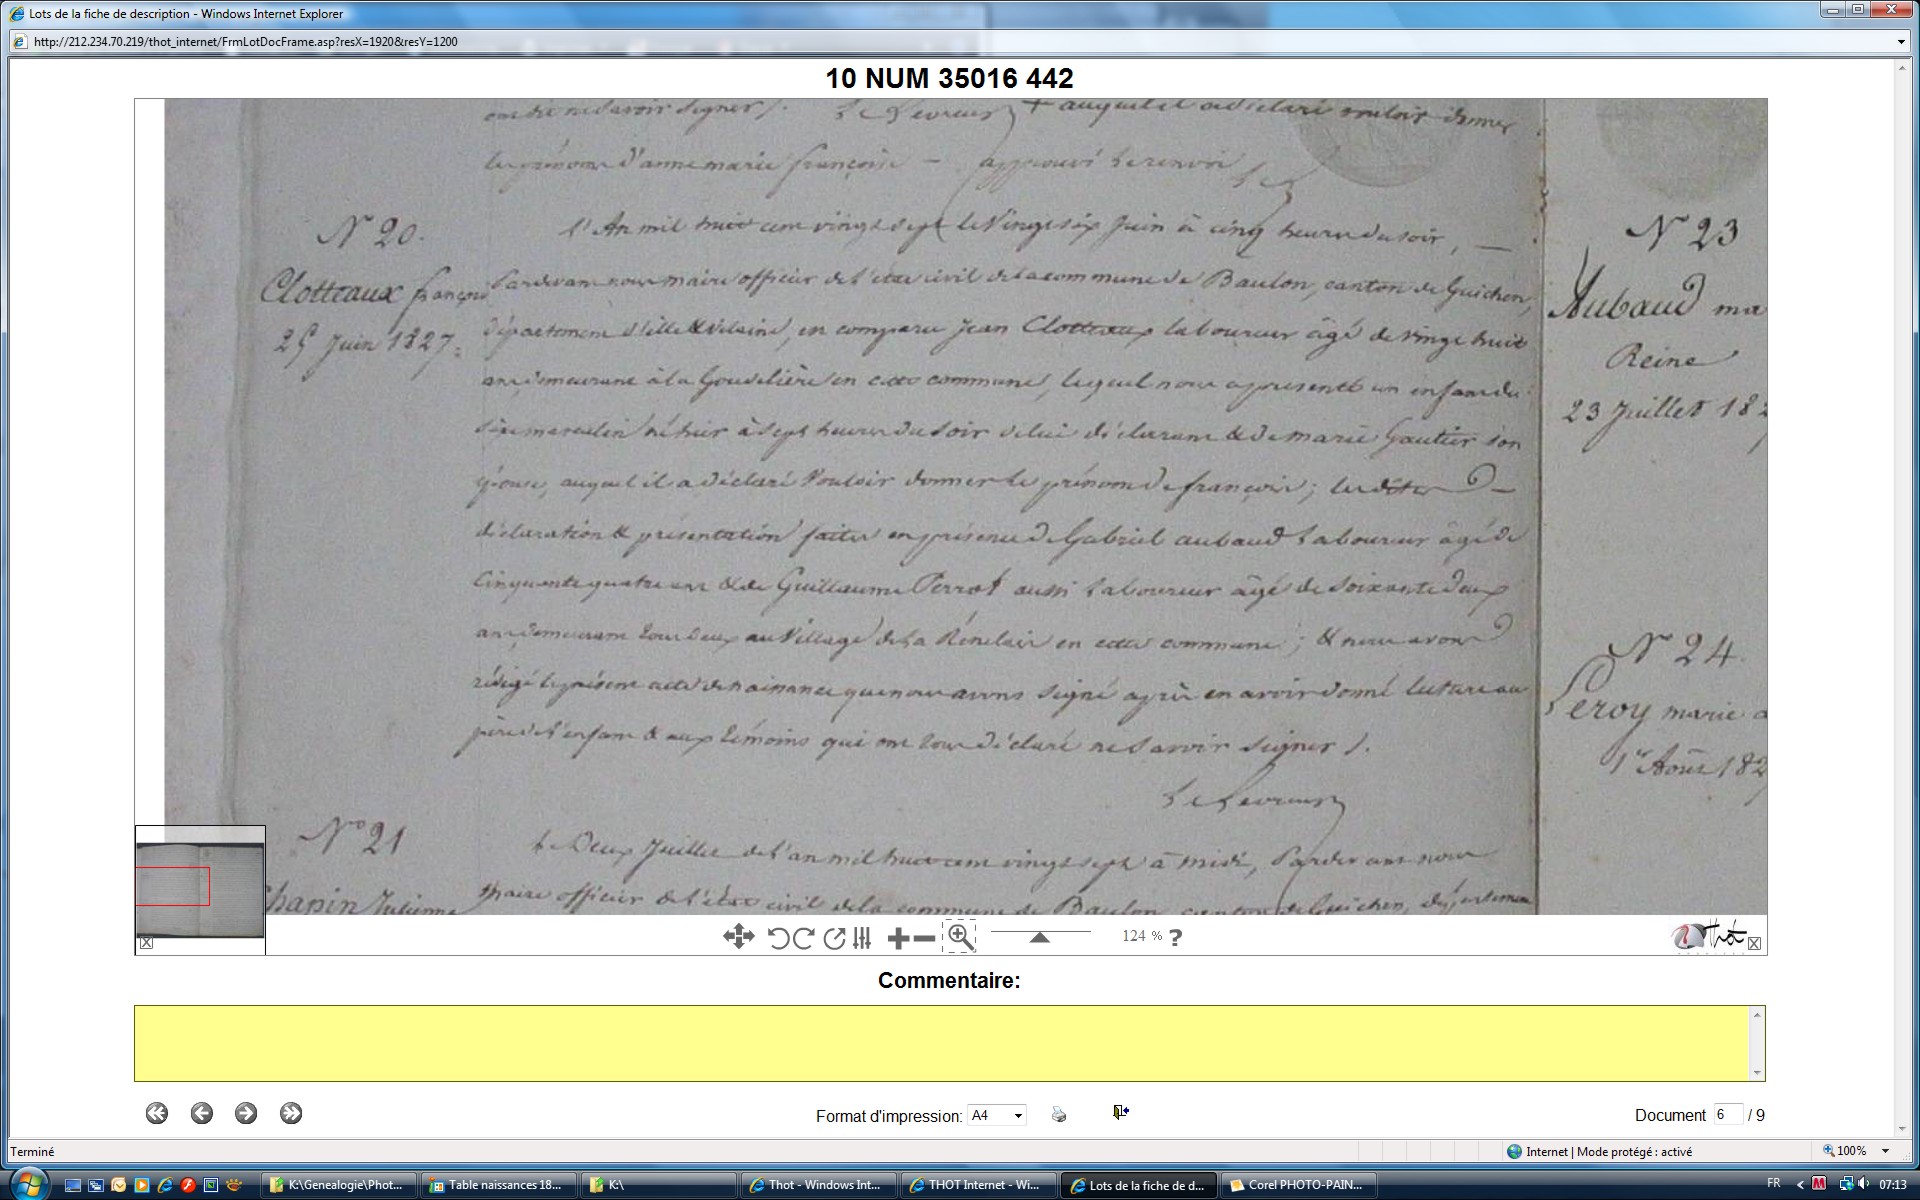 Lots de la fiche de description - Windows Internet Explorer
http://212.234.70.219/thot_internet/FrmLotDocFrame.asp?resX=1920&resY=1200
10 NUM 35016 442
ont dit ne savoir signer /. + auquel il a déclaré vouloir donner
les prénoms d'anne marie françoise — approuvé le renvoi
N° 20.
Clotteaux françois
25 Juin 1827.
l'An mil huit cent vingt sept le Vingt six Juin à cinq heures du soir, —
Pardevant nous maire officier de l'état civil de la commune de Baulon, canton de Guichen,
département d'ille & vilaine, en comparu Jean Clotteaux laboureur âgé de vingt huit
ans demeurant à la Goudelière en cette commune, lequel nous a présenté un enfant du
sexe masculin né hier à sept heures du soir de lui déclarant & de marie Gautier son
épouse, auquel il a déclaré Vouloir donner le prénom de françois; les dites —
déclaration & présentation faites en présence de Gabriel aubaud laboureur âgé de
Cinquante quatre ans & de Guillaume Perrot aussi laboureur âgé de soixante deux
ans demeurant tous deux au Village de la en cette commune; & nous avons
rédigé le présent acte de naissance que nous avons signé après en avoir donné lecture au
père de l'enfant & aux témoins qui ont tous déclaré ne savoir signer /.
N° 21
Chapin Julienne
le Deux Juillet de l'an mil huit cent vingt sept à midi, Pardevant nous
Maire officier de l'état civil de la commune de Baulon, canton de Guichen, département
N° 23
Aubaud ma
Reine
23 Juillet 182
N° 24.
Leroy marie a
1er Août 182
124 % ?
Thot
Commentaire:
Format d'impression: A4
Document 6 / 9
Terminé
Internet | Mode protégé : activé
100%
K:\Genealogie\Phot...
Table naissances 18...
K:\
Thot - Windows Int...
THOT Internet - Wi...
Lots de la fiche de d...
Corel PHOTO-PAIN...
FR
07:13